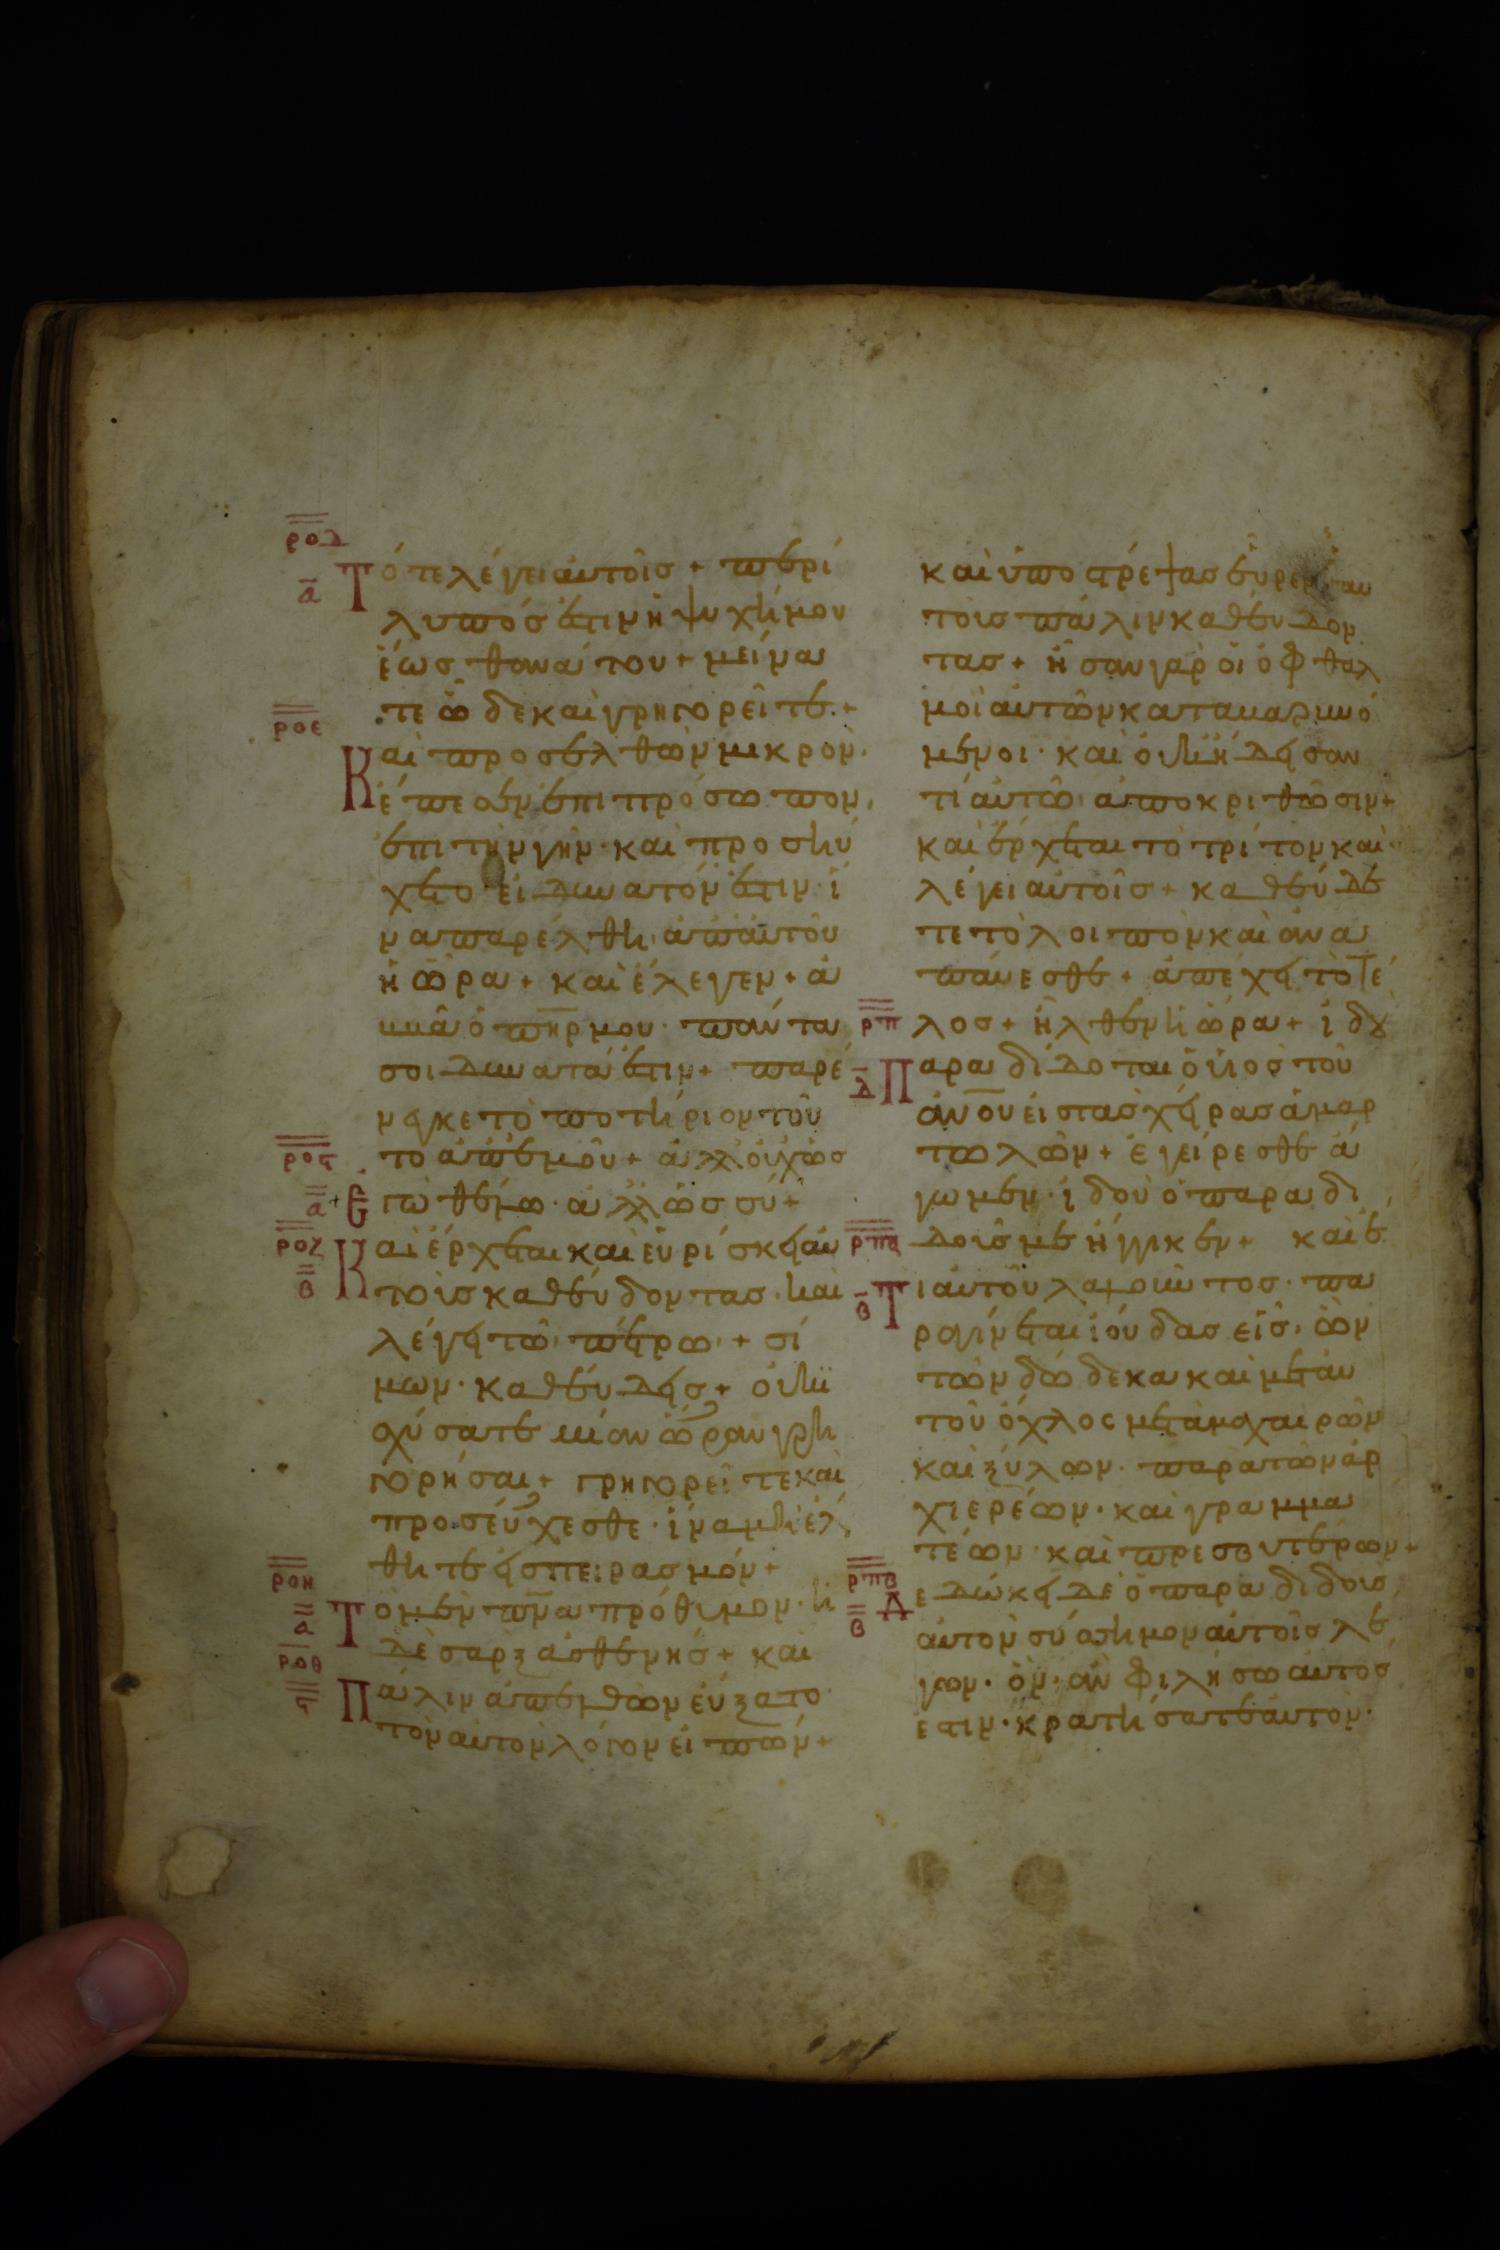 ροδ
α Τότε λέγει αὐτοῖσ + περί
λυπόσ ἐστιν ἡ ψυχή μου
ἕωσ θανάτου + μείνα
τε ὧδε καὶ γρηγορεῖτε +
ροε
Καὶ προσελθὼν μικρὸν.
ἔπεσεν ἐπι πρόσωπον,
ἐπι τὴν γῆν · καὶ προσηύ
χετο εἰ δυνατόν ἐστιν ἵ
να παρέλθη ἀπ αὐτοῦ
ἡ ὥρα + καὶ ἔλεγεν + ἀ
ββᾶ ὁ πηρ μου · πάντα
σοι δυνατά ἐστιν + παρέ
νεγκε τὸ ποτήριον τοῦ
το ἀπ ἐμοῦ + ἀλλ οὐχ ὡσ
ροϛ
α + Ἐγὼ θέλω · ἀλλ ὡσ σύ +
ροζ
β Καὶ ἔρχεται καὶ εὑρίσκει αὐ
τοὺσ καθεύδοντασ · καὶ
λέγει τῶ πέτρω + σί
μων · καθεύδεισ + οὐκ ἰ
σχύσατε μίαν ὥραν γρη
γορῆσαι + γρηγορεῖτε καὶ
προσεύχεσθε · ἵνα μὴ ἔλ
θητε εἰσ πειρασμόν +
ροη
α Τὸ μὲν πνα πρόθυμον · ἡ
δὲ σὰρξ ἀσθενήσ + καὶ
ροθ
ϛ Πάλιν ἀπελθὼν εὔξατο
τὸν αὐτὸν λόγον εἰπών +
καὶ ὑποστρέψασ εὗρεν αὐ
τοὺσ πάλιν καθεύδον
τασ + ἦσαν γὰρ οἱ ὀφθαλ
μοὶ αὐτῶν καταβαρυνό
μενοι · καὶ οὐκ ἤδεισαν
τί αὐτῶ ἀποκριθῶσιν +
καὶ ἔρχεται τὸ τρίτον καὶ
λέγει αὐτοῖσ + καθεύδε
τε τὸ λοιπὸν καὶ ἀνα
παύεσθε + ἀπέχει τὸ τέ
ρπ λοσ + ἦλθεν ἡ ὥρα + ἰδου
δ Παραδίδοται ὁ υἱὸσ τοῦ
ανου εἰσ τασ χεῖρασ ἁμαρ
τωλῶν + ἐγείρεσθε ἄ
γωμεν · ἰδοὺ ὁ παραδι
ρπα δούσ με ἤγγικεν + καὶ ἔ
β Τι αὐτοῦ λαλοῦντοσ · πα
ραγίνεται ἰούδασ εἷσ, ὢν
τῶν δώδεκα καὶ μετ αυ
τοῦ ὄχλος μετὰ μαχαιρῶν
καὶ ξύλων · παρὰ τῶν ἀρ
χιερέων · καὶ γραμμα
τέων · καὶ πρεσβυτέρων +
ρπβ
β Δεδώκει δὲ ὁ παραδιδοὺσ
αὐτὸν σύσσημον αὐτοῖσ λέ
γων · ὃν ἂν φιλήσω αὐτοσ
ἐστιν · κρατήσατε αὐτὸν ·